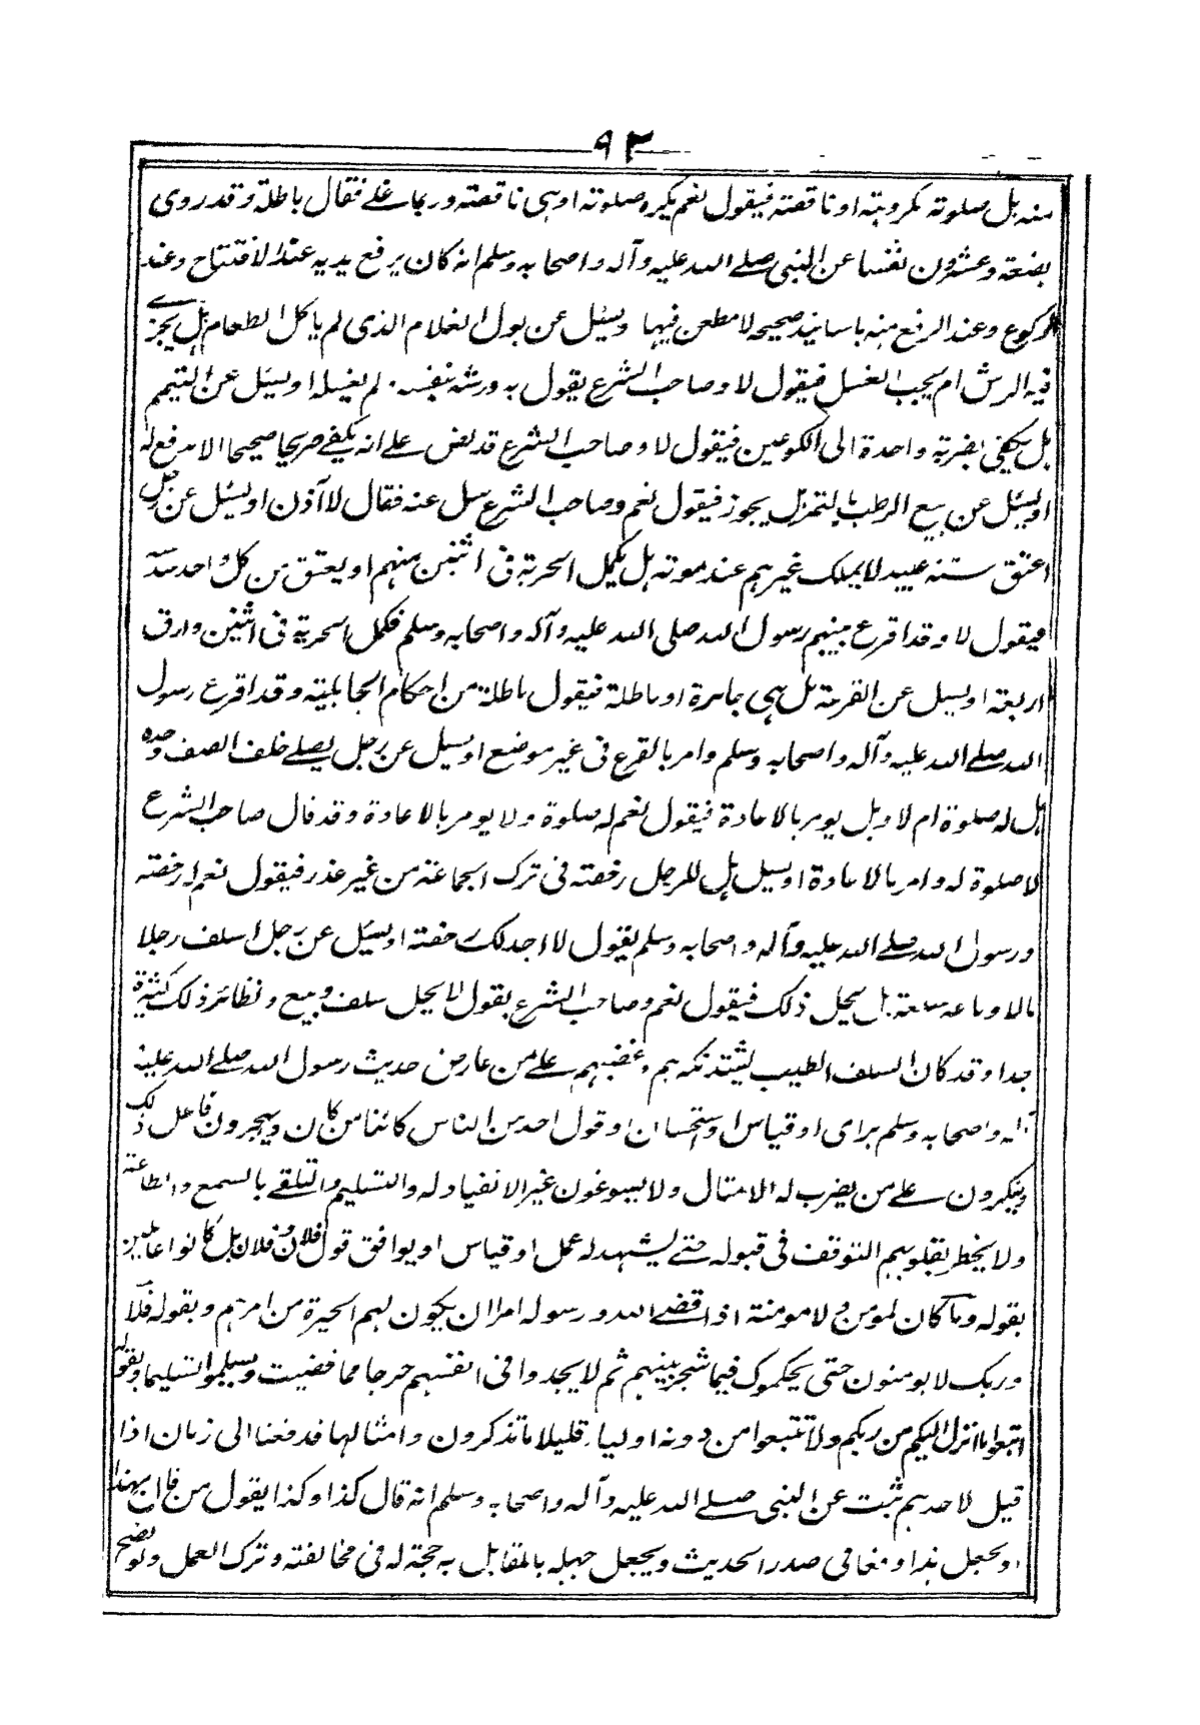 ٩٣
منه هل صلوته مكروهة او ناقصة فيقول نعم يكره صلوته او هى ناقصة وربما غلے فقال باطلة وقد روى
بضعة وعشرون نفسا عن النبي صلے الله عليه وآله واصحابه وسلم انه كان يرفع يديه عند الافتتاح وعند
الركوع وعند الرفع منه باسانيد صحيحه لا مطعن فيها ويسئل عن بول الغلام الذى لم ياكل الطعام هل يجزے
فيه الرش ام يجب الغسل فيقول لا وصاحب الشرع يقول به ورشه بنفسه. لم يغسله او يسئل عن التيمم
هل يكفى بضربة واحدة الى الكوعين فيقول لا وصاحب الشرع قد نص علے انه يكفے صريحا صحيحا لا مدفع له
او يسئل عن بيع الرطب بالتمر هل يجوز فيقول نعم وصاحب الشرع سل عنه فقال لا آذن او يسئل عن رجل
اعتق ستة عبيد لا يملك غيرهم عند موته هل يكمل الحرية فى اثنين منهم او يعتق من كل احد سدسه
فيقول لا وقد اقرع بينهم رسول الله صلى الله عليه وآله واصحابه وسلم فكمل الحرية فى اثنين وارق
اربعة او يسيل عن القرعة هل هى جائزة او باطلة فيقول باطلة من احكام الجاهلية وقد اقرع رسول
الله صلے الله عليه وآله واصحابه وسلم وامر بالقرع فى غير موضع او يسيل عن رجل يصلے خلف الصف وحده
هل له صلوة ام لا وهل يومر بالاعادة فيقول نعم له صلوة ولا يومر بالاعادة وقد قال صاحب الشرع
لا صلوة له وامر بالاعادة او يسيل هل للرجل رخصة فى ترك الجماعة من غير عذر فيقول نعم له رخصة
ورسول الله صلے الله عليه وآله واصحابه وسلم يقول لا اجد لك رخصة او يسئل عن رجل اسلف رجلا
مالا وباعه سلعة هل يحيل ذلك فيقول نعم وصاحب الشرع يقول لا يحيل سلف وبيع ونظائر ذلك كثيرة
جدا وقد كان السلف الطيب يشتد نكيرهم وغضبهم علے من عارض حديث رسول الله صلے الله عليه
وآله واصحابه وسلم براى او قياس او استحسان او قول احد من الناس كائنا من كان ويهجرون فاعل ذلك
وينكرون علے من يضرب له الامثال ولا يسوغون غير الانقياد له والتسليم والتلقے بالسمع والطاعة
ولا يخطر بقلوبهم التوقف فى قبوله حتے يشهد له عمل او قياس او يوافق قول فلان وفلان بل كانوا عاملين
بقوله وما كان لمؤمن ولا مومنة اذا قضے الله ورسوله امرا ان يكون لهم الخيرة من امرهم وبقوله فلا
وربك لا يومنون حتى يحكموك فيما شجر بينهم ثم لا يجدوا فى انفسهم حرجا مما قضيت ويسلموا تسليما وبقوله
اتبعوا ما انزل اليكم من ربكم ولا تتبعوا من دونه اوليا. قليلا ما تذكرون وامثالها فدفعنا الى زمان اذا
قيل لاحدهم ثبت عن النبي صلے الله عليه وآله واصحابه وسلم انه قال كذا وكذا يقول من قال بهذا
او يجعل هذا دفعا فى صدر الحديث ويجعل جهله بالمقابل به حجة له فى مخالفته وترك العمل ولو نصح